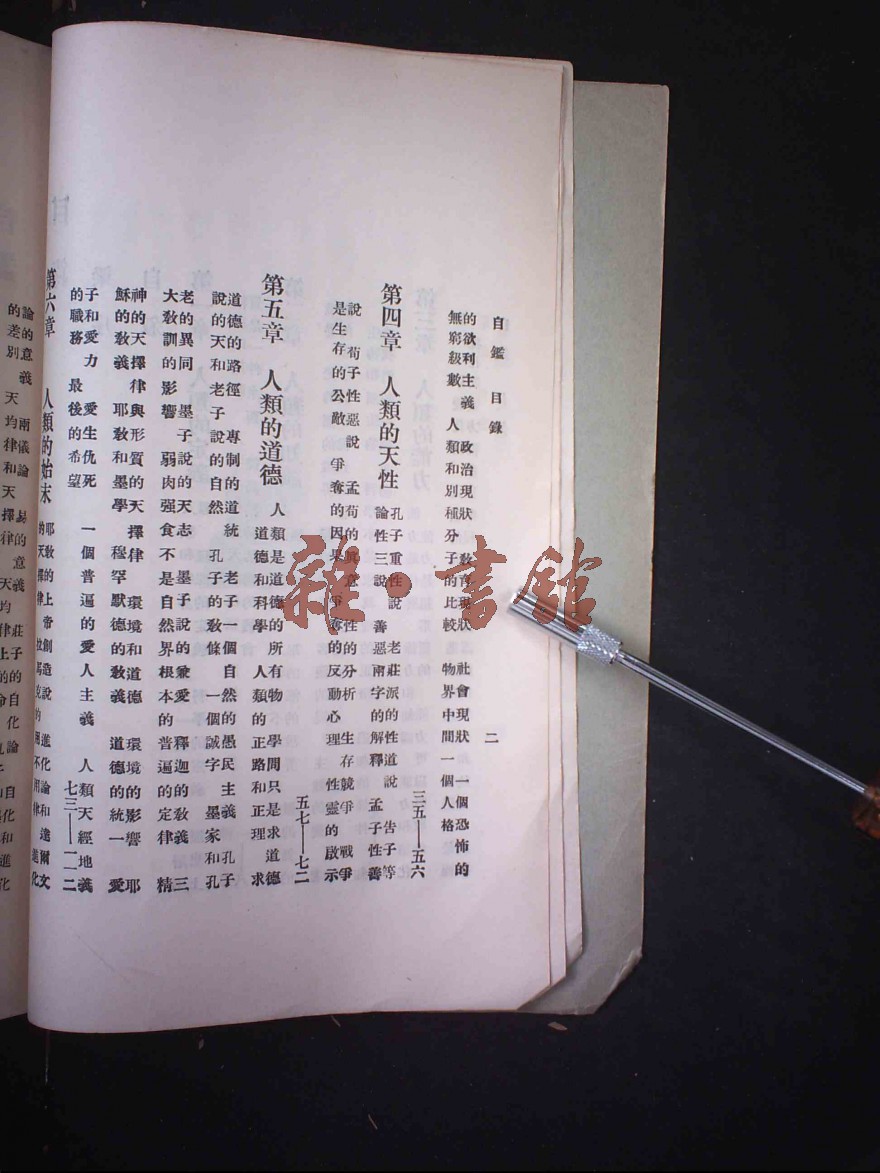 自鑑目錄 二
的欲利主義 政治現狀 教育現狀 社會現狀 一個恐怖的
無窮級數 人類和別種分子的比較 物界中間一個人格
第四章 人類的天性 三五—五六
孔子重性說 老莊派的性道說 告子等
論性三說 善惡兩字的解釋 孟子性善
說 荀子性惡說 孟荀的眞意 性的分析 生存競爭 戰爭
是生存的公敵 爭奪的因果 爭奪的反動心理 性靈的啟示
第五章 人類的道德 五七—七二
人類是道德的所有物 學問只是求道德
道德和科學 人類的正路和正理 求
道德的路徑 專制的道統 老子一個自然的愚民主義 孔子
說的天和老子說的自然 孔子的教條 一個誠字 墨家和孔
老的異同 墨子說的天志 墨子說的兼愛 釋迦的教義 三
大教訓的影響 弱肉强食不是自然界根本的普遍的定律 精
神的天擇律與形質的天擇律 環境和道德 環境的影響 耶
穌的教義 耶教和墨學 穆罕默德的教義 道德的統一 愛
子和愛力 愛生仇死 一個普遍的愛人主義 人類天經地義
的職務 最後的希望
第六章 人類的始末 七三—一一二
耶教的上帝創造說 進化論和達爾文
的天擇律 拉馬克的用不用律 進化
論的意義 兩儀論
的差別 天均律和天
雜·書館